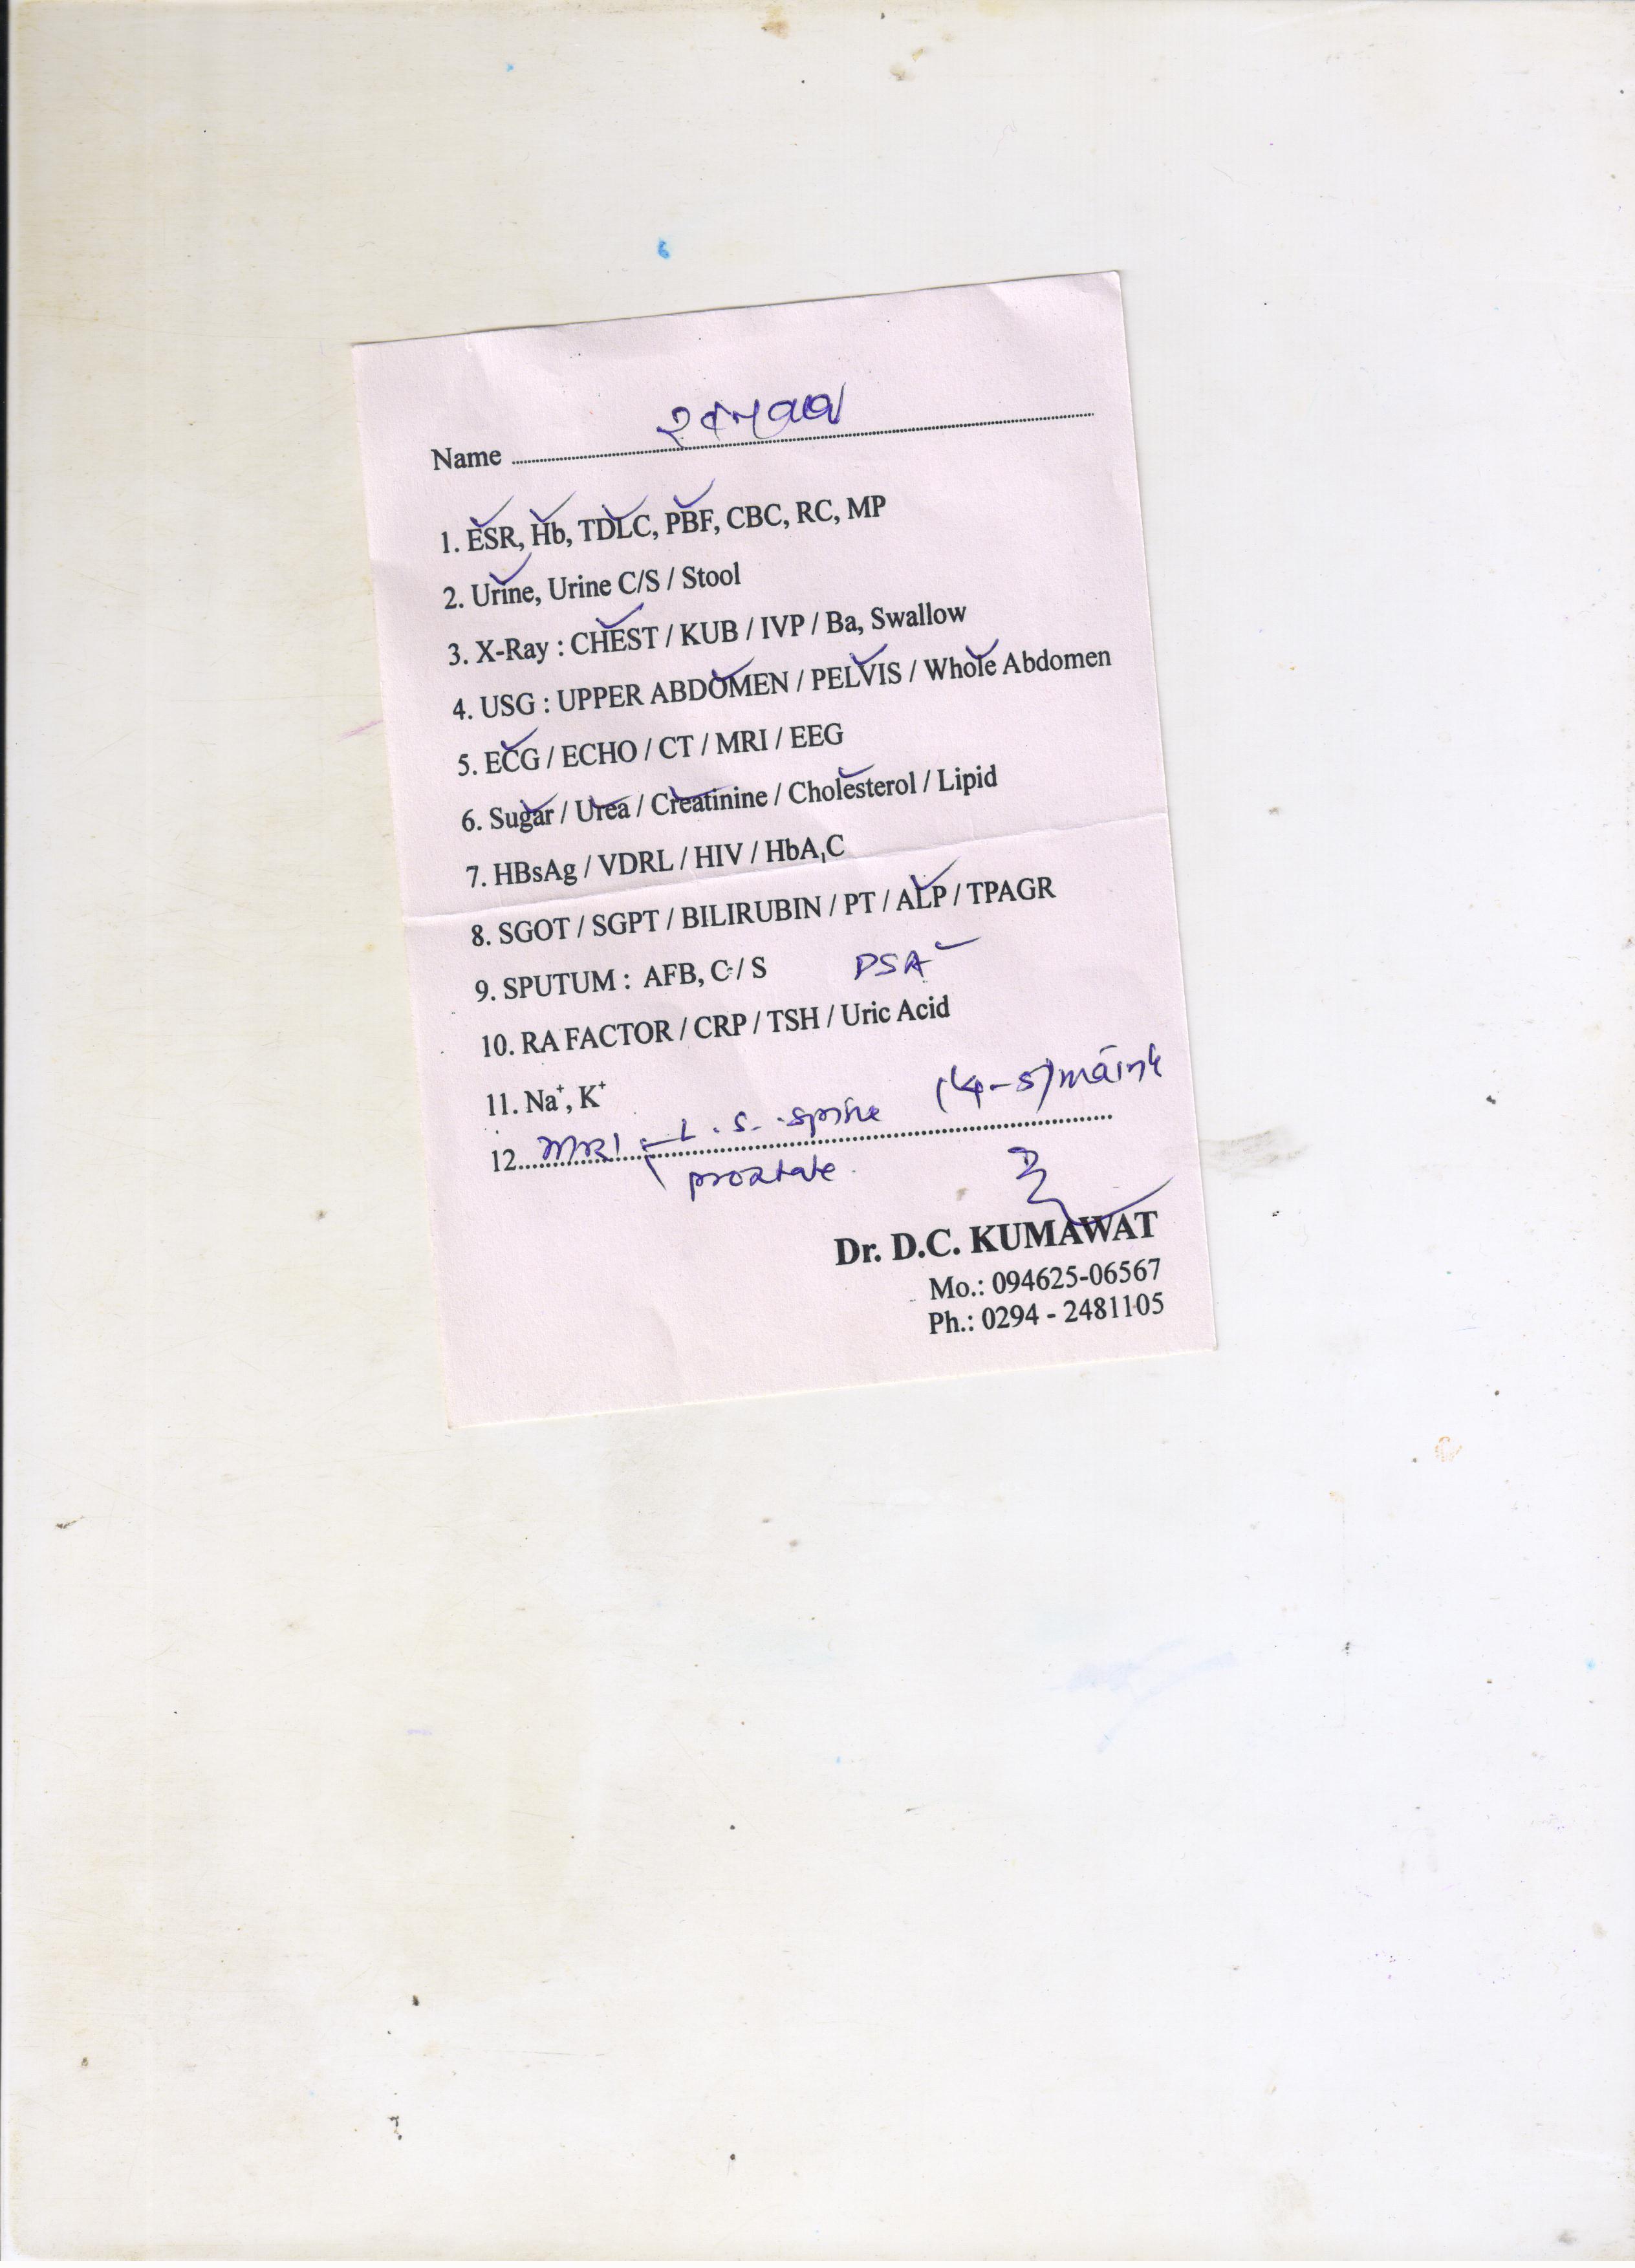 Name
1. ESR, Hb, TDLC, PBF, CBC, RC, MP
2. Urine, Urine C/S / Stool
3. X-Ray : CHEST / KUB / IVP / Ba, Swallow
4. USG : UPPER ABDOMEN / PELVIS / Whole Abdomen
5. ECG / ECHO / CT / MRI / EEG
6. Sugar / Urea / Creatinine / Cholesterol / Lipid
7. HBsAg / VDRL / HIV / HbA₁C
8. SGOT / SGPT / BILIRUBIN / PT / ALP / TPAGR
9. SPUTUM : AFB, C / S PSA
10. RA FACTOR / CRP / TSH / Uric Acid
11. Na⁺, K⁺
12. MRI L.S. spine
prostate
Dr. D.C. KUMAWAT
Mo.: 094625-06567
Ph.: 0294 - 2481105